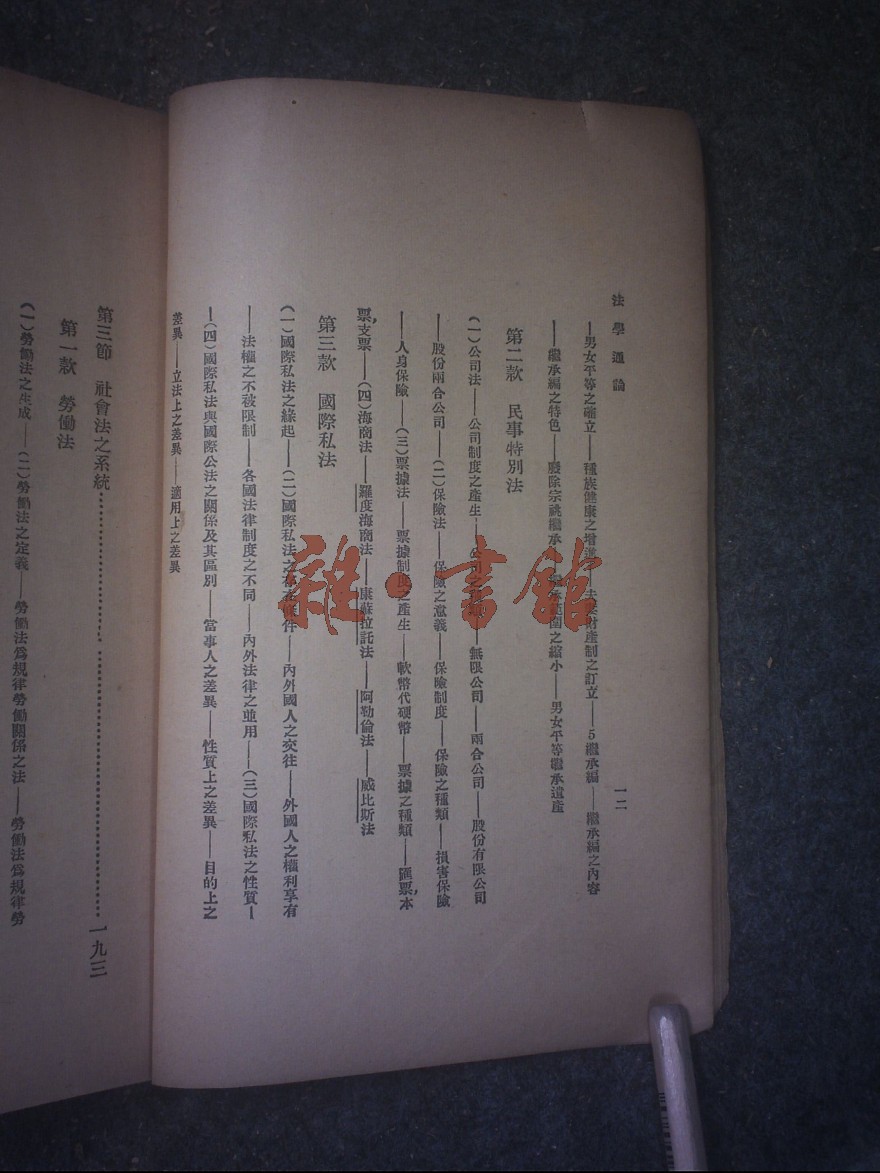 法學通論
一二
—男女平等之確立——種族健康之增進——夫妻財產制之訂立——5繼承編——繼承編之內容
——繼承編之特色——廢除宗祧繼承——繼承範圍之縮小——男女平等繼承遺產
第二款　民事特別法
(一)公司法——公司制度之產生——公司之種類——無限公司——兩合公司——股份有限公司
——股份兩合公司——(二)保險法——保險之意義——保險制度——保險之種類——損害保險
——人身保險——(三)票據法——票據制度之產生——軟幣代硬幣——票據之種類——匯票，本
票，支票——(四)海商法——羅度海商法——康蘇拉託法——阿勒倫法——威比斯法
第三款　國際私法
(一)國際私法之緣起——(二)國際私法之存在條件——內外國人之交往——外國人之權利享有
——法權之不被限制——各國法律制度之不同——內外法律之並用——(三)國際私法之性質—
—(四)國際私法與國際公法之關係及其區別——當事人之差異——性質上之差異——目的上之
差異——立法上之差異——適用上之差異
第三節　社會法之系統……………………………………一九三
第一款　勞働法
(一)勞働法之生成——(二)勞働法之定義——勞働法爲規律勞働關係之法——勞働法爲規律勞
雜·書館